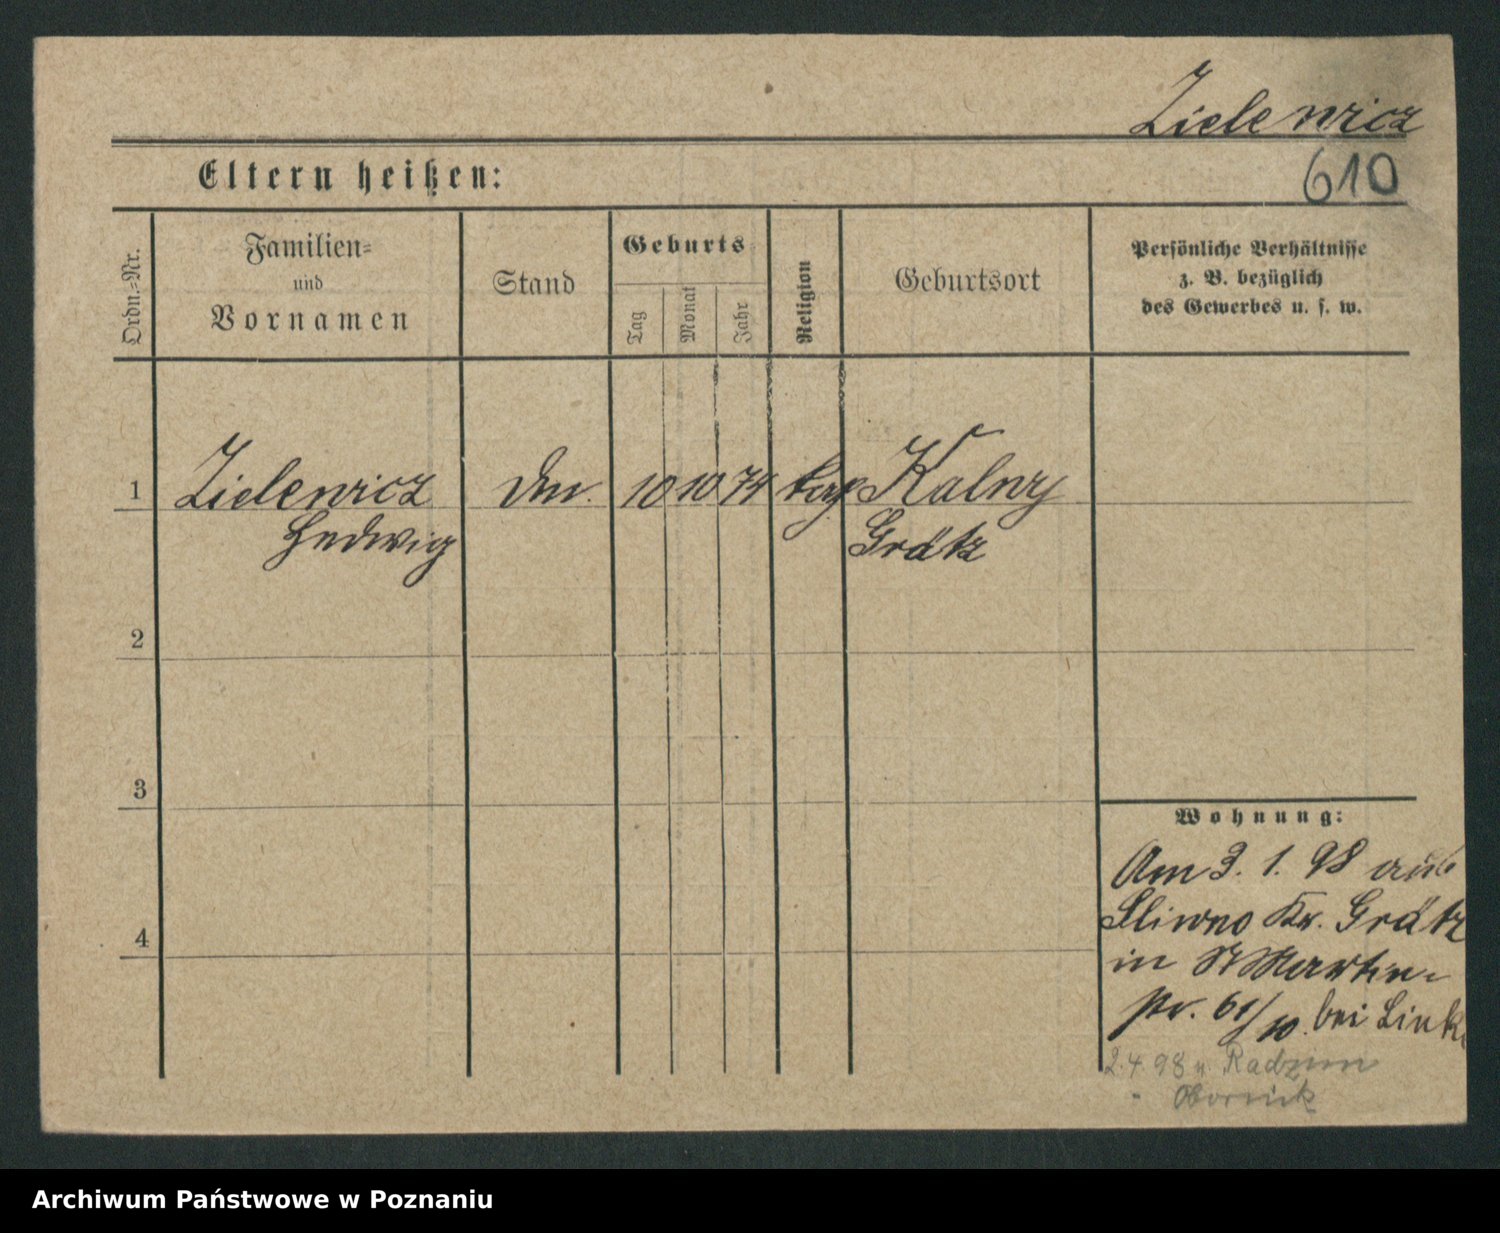 Zielewicz
Eltern heißen:
610
Ordn.-Nr.
Familien-
und
Vornamen
Stand
Geburts
Tag
Monat
Jahr
Religion
Geburtsort
Persönliche Verhältnisse
z. B. bezüglich
des Gewerbes u. s. w.
1 Zielewicz 10 10 74 Kalwy
Hedwig Grätz
2
3
4
Wohnung:
Am 3. 1. 98 aus
Sliwno Kr. Grätz
in St Martin-
str. 61/10. bei Link
2.4.98 n. Radzim
Obornik
Archiwum Państwowe w Poznaniu